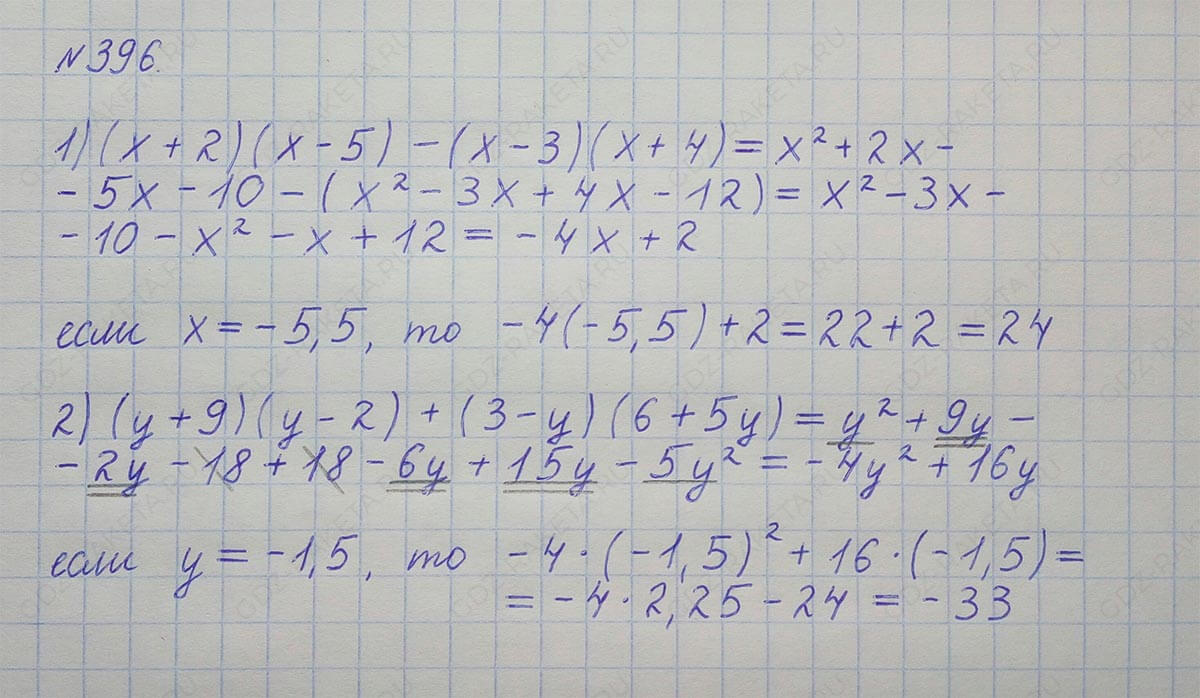 №396.
1) (x + 2)(x - 5) - (x - 3)(x + 4) = x² + 2x -
- 5x - 10 - (x² - 3x + 4x - 12) = x² - 3x -
- 10 - x² - x + 12 = - 4x + 2
если x = - 5,5, то - 4(-5,5) + 2 = 22 + 2 = 24
2) (y + 9)(y - 2) + (3 - y)(6 + 5y) = y² + 9y -
- 2y - 18 + 18 - 6y + 15y - 5y² = - 4y² + 16y
если y = -1,5, то - 4 · (-1,5)² + 16 · (-1,5) =
= - 4 · 2,25 - 24 = - 33
GDZ-RAKETA.RU